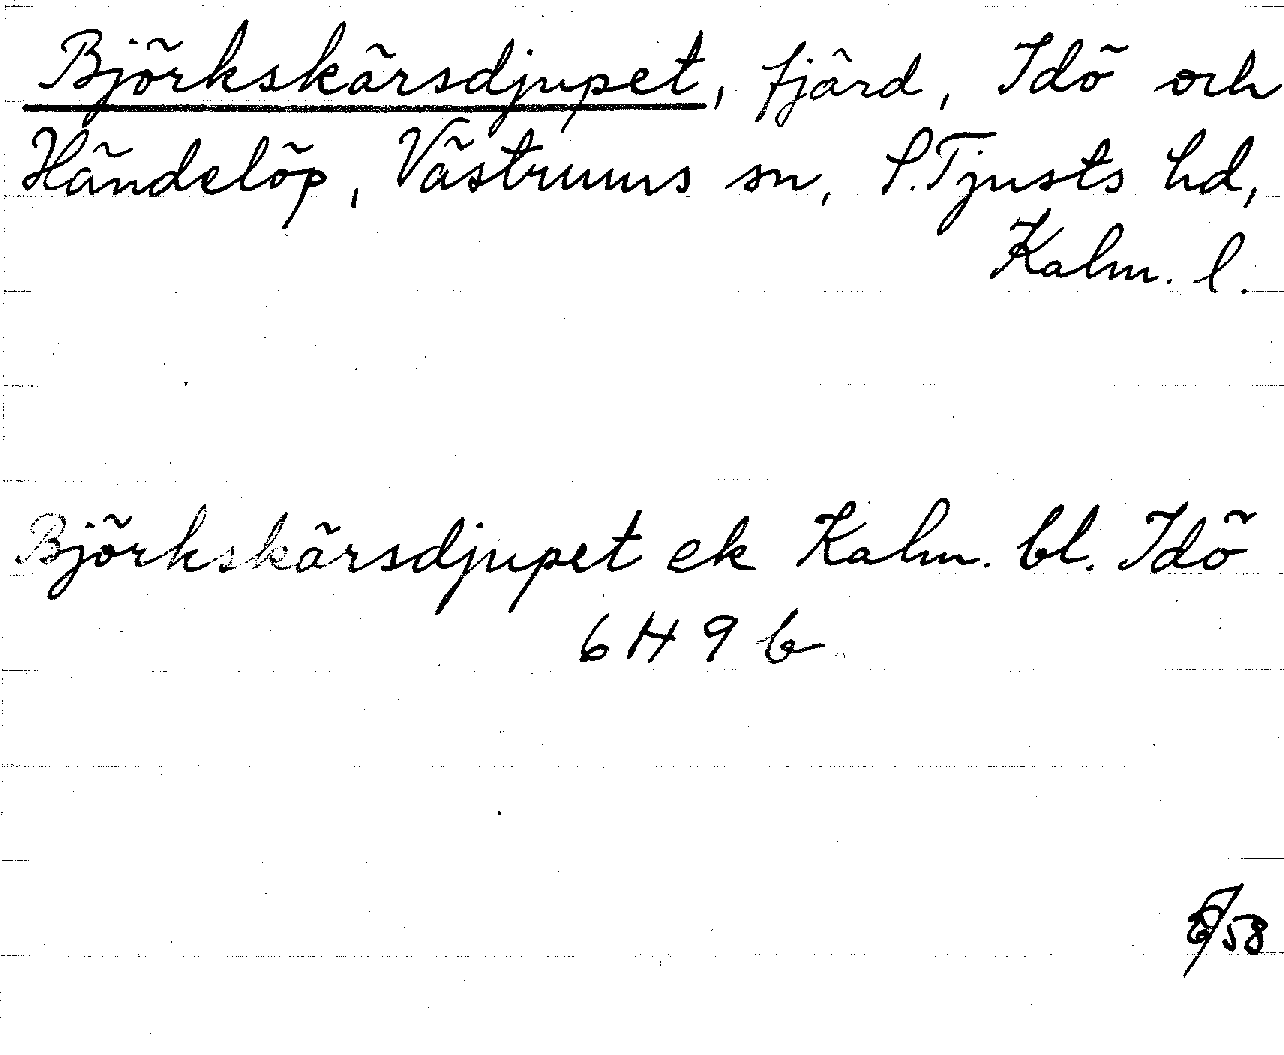 Björkskärsdjupet, fjärd, Idö och
Händelöp, Västrums sn, S. Tjusts hd,
Kalm. l.
Björkskärsdjupet ek Kalm. bl. Idö
6 H 9 b